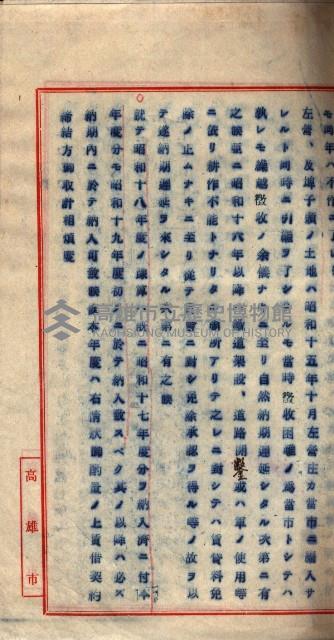 左營、及埤子頭ノ土地ハ昭和十五年十月左營庄カ當市ニ編入サ
レルト同時ニ引繼ヲ了シタルモ當時徵收困難ノ爲當市トシテハ
執レモ繰越徵收ノ余儀ナ 至リ自然納期遲延シタル次第ニ有
之候至ニ昭和十六年以降 道架設、道路開鑿或ハ軍ノ使用等
ニ依リ耕作不能トナリタ 箇所アリテ之レニ對シテハ賃貸料免
除ノ止ムナキニ至リ從テ ニ對シ免除承認ヲ得ル等ノ故ヲ以
テ遂納期遲延ヲ來シタル ニ有之候
就テ昭和十八年度 和十七年度分ヲ納入濟ニ付本
年度分モ昭和十九年度初 於テ納入致スベク其ノ以降ハ必ズ
納期內ニ於テ納入可致候 本年度ハ右情狀御酌量ノ上賃借契約
締結方御取計相煩度
高雄市立歷史博物館
KAOHSIUNG MUSEUM OF HISTORY
高雄市